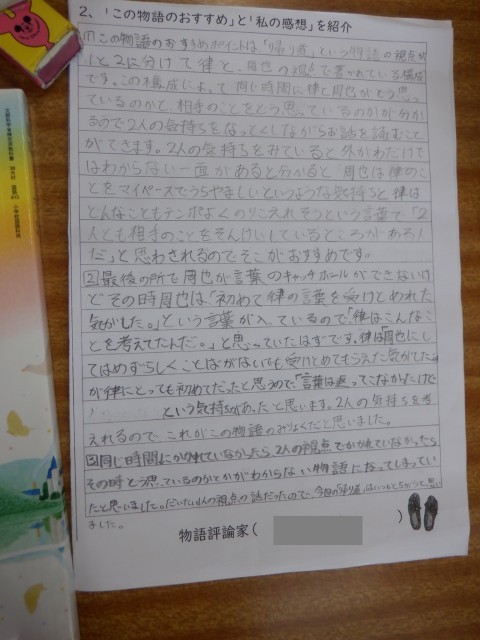 2、「この物語のおすすめ」と「私の感想」を紹介
①この物語のおすすめポイントは「帰り道」という物語の視点が
1と2に分けて律と、周也の視点で書かれている構成
です。この構成によって同じ時間に律と周也がどう思っ
ているのかと、相手のことをどう思っているのかが分か
るので2人の気持ちをなっとくしながらお話を読むこと
ができます。2人の気持ちをみていると外がわだけで
はわからない一面があると分かると 周也は律のこ
とをマイペースでうらやましいというような気持ちと律は
どんなこともテンポよくのりこえれそうという言葉で「2
人とも相手のことをそんけいしているところがある!
だ」と思わされるのでそこがおすすめです。
②最後の所で周也が言葉のキャッチボールができないけ
どその時周也は「初めて律の言葉を受けとめれた
気がした。」という言葉が入っているので「律はこんなこ
とを考えてたんだ。」と思っていたはずです。律は「周也にし
てはめずらしくことばがないでも受けとめてもらえた気がした
が律にとっても初めてだったと思うので、「言葉は返ってこなかったけど
という気持ちがあったと思います。2人の気持ちを考
えれるので、これがこの物語のみりょくだと思いました。
③同じ時間にかかれていなかったら2人の視点でかかれていなかったら
その時どう思っているのかとかがわからない物語になってしまってい
たと思いました。だいたい1人の視点の話だったので、今回の「帰り道」はいつもとちがうと思い
ました。
物語評論家( )